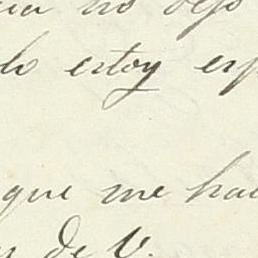 no dejo
lo estoy esp
que me hac
de V.